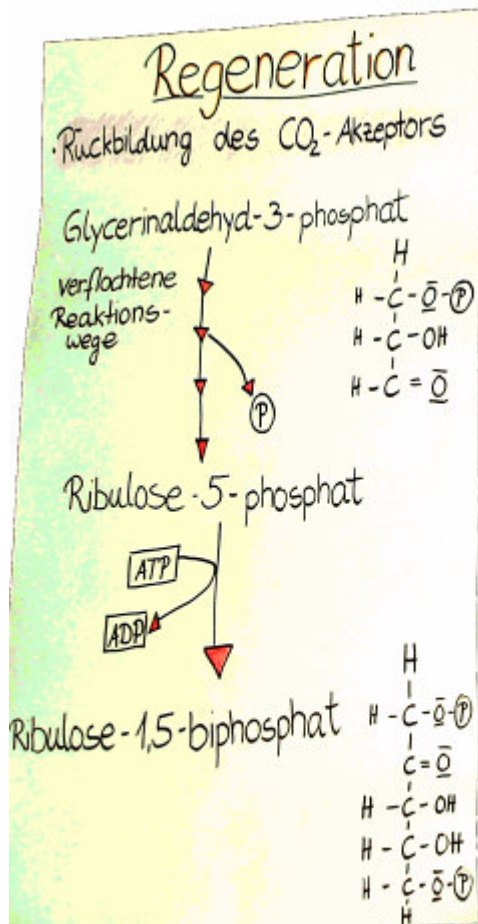 Regeneration
·Rückbildung des CO₂-Akzeptors
Glycerinaldehyd-3-phosphat
verflochtene
Reaktions-
wege
H
H - C - O̅ - P
H - C - OH
H - C = O̅
P
Ribulose-5-phosphat
ATP
ADP
Ribulose-1,5-biphosphat
H
H - C - O̅ - P
C = O̅
H - C - OH
H - C - OH
H - C - O̅ - P
H